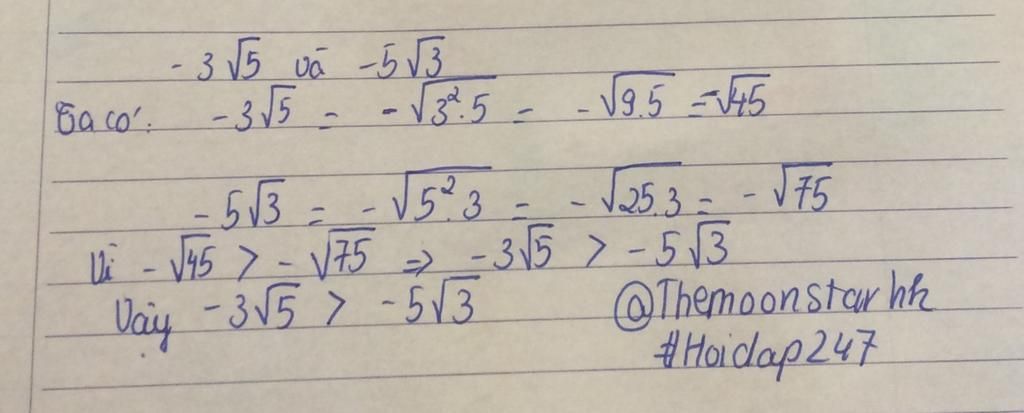 -3√5 và -5√3
Ta có: -3√5 = -√3².5 = -√9.5 = -√45
-5√3 = -√5².3 = -√25.3 = -√75
Vì -√45 > -√75 => -3√5 > -5√3
Vậy -3√5 > -5√3
@Themoonstarhh
#Hoidap247